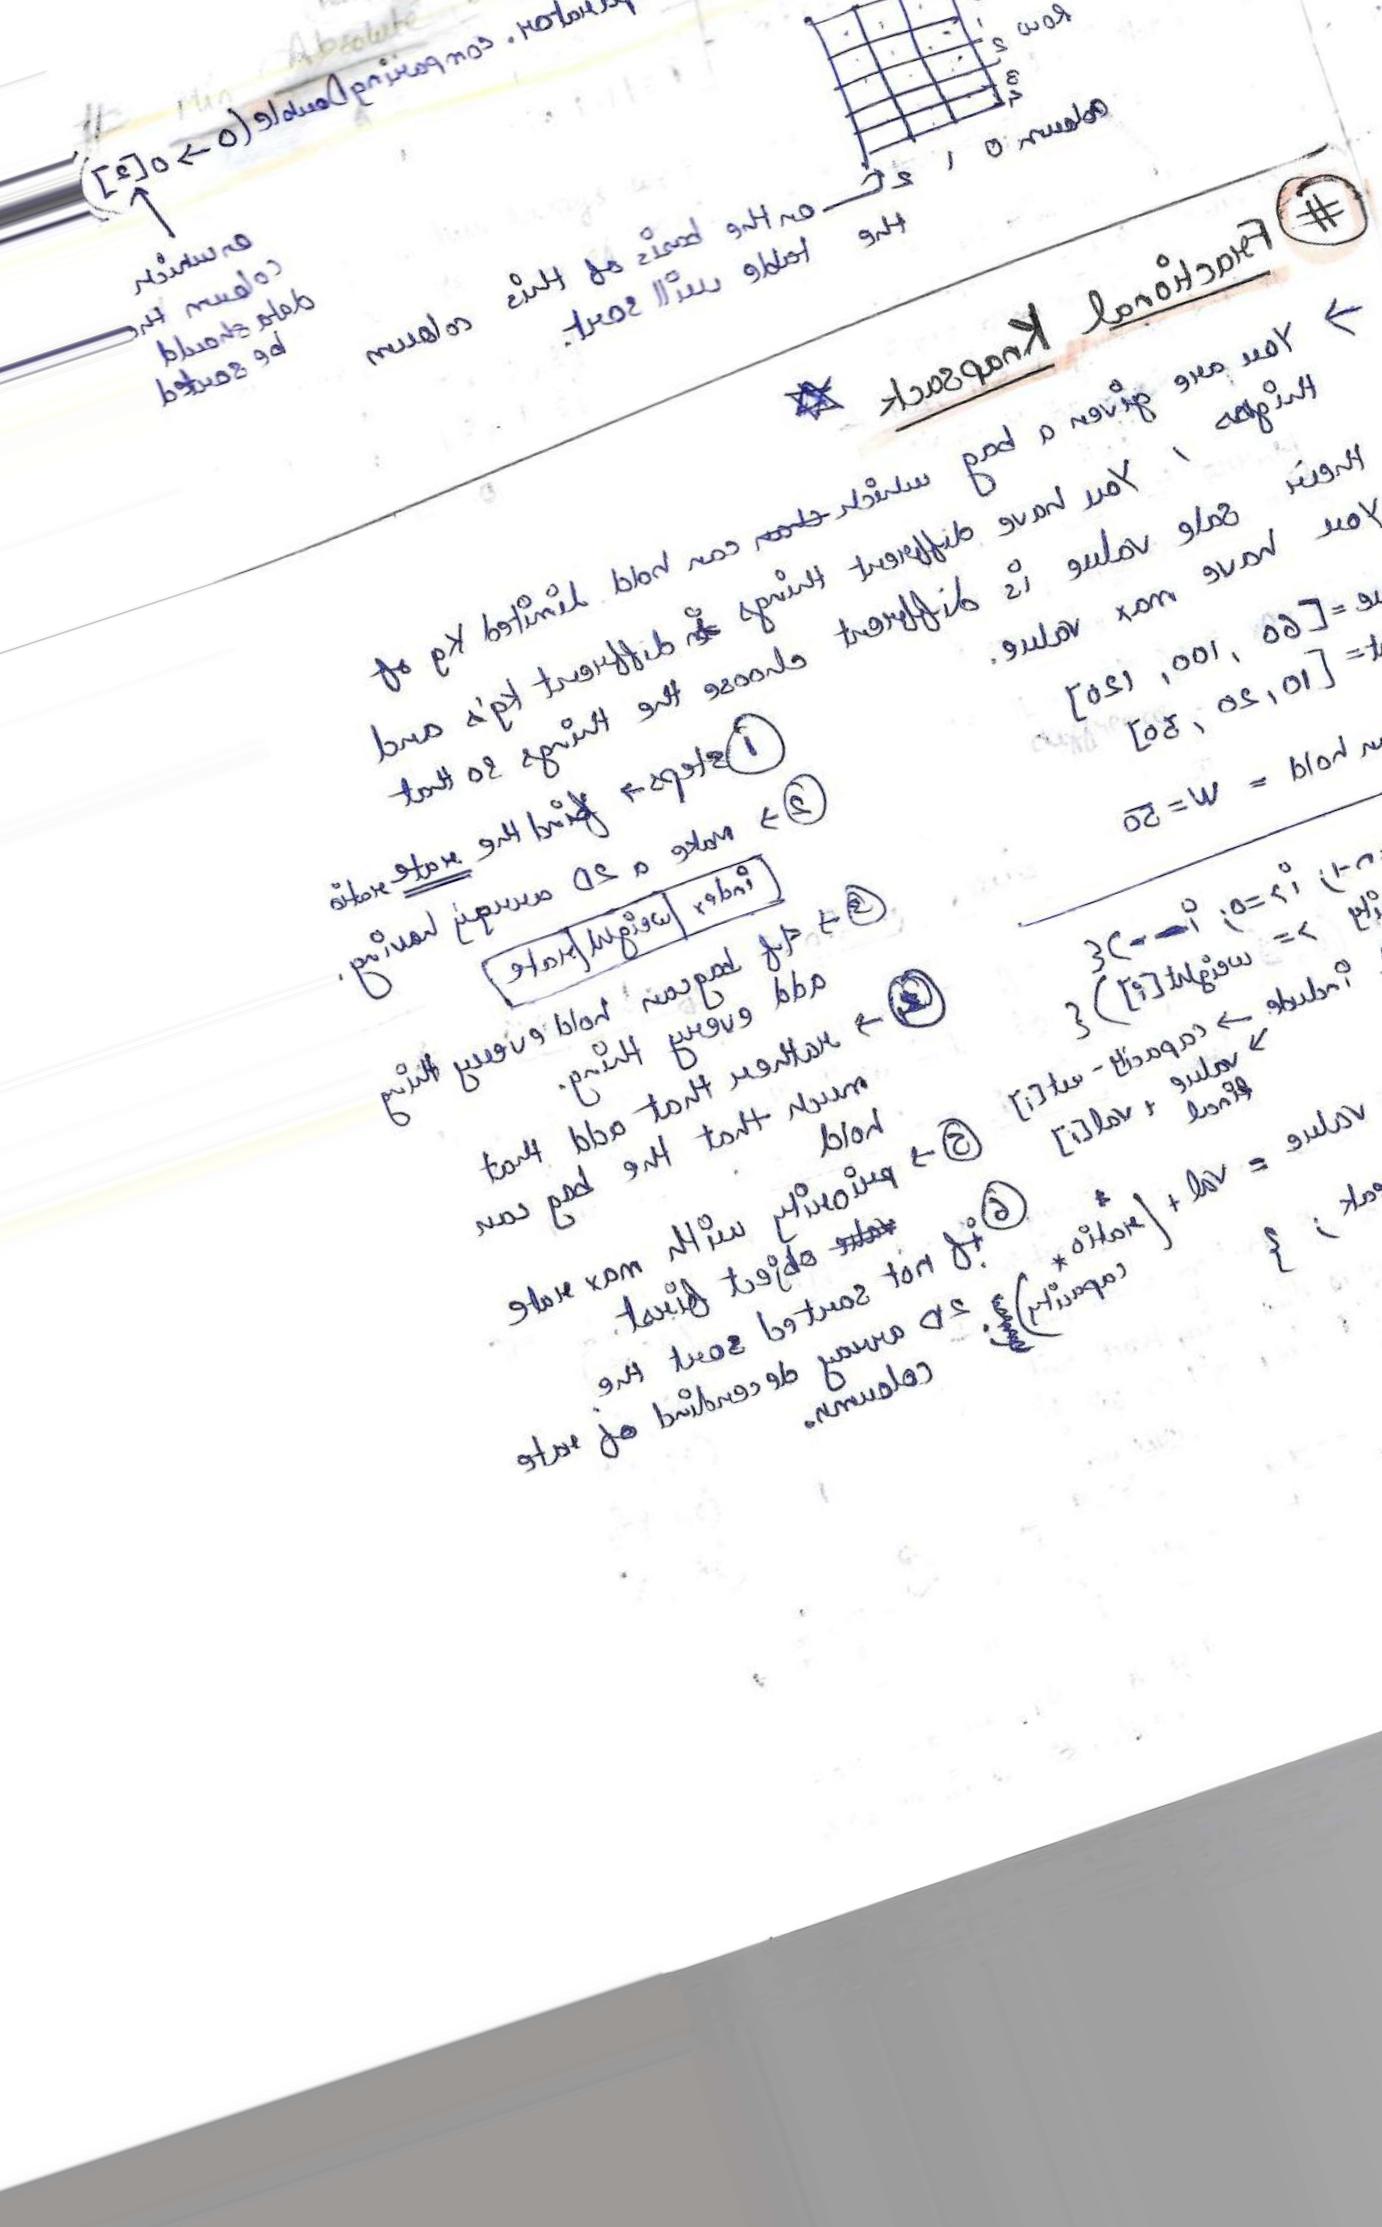 Absolute
comparingDouble(o → o[2])
on which
column the
data should
be sorted
Row
1
2
3
4
column 0 1 2
on the basis of this column
the table will sort.
# Fractional Knapsack
→ You are given a bag which can hold limited Kg of
things, You have different things in different Kg's and
their sale value is different choose the things so that
You have max value.
= [60, 100, 120]
= [10, 20, 30]
hold = W = 50
① steps → find the rate ratio
② → make a 2D array having.
index | weight | rate
③ → If bag can hold every thing
add every thing.
④ → rather that add that
much that the bag can
hold
⑤ → priority with max rate
object first.
⑥ if not sorted sort the
2D array decendind of rate
column.
n-1; i>=0; i--){
>= weight[i]){
include → capacity - wt[i]
↘ final value + val[i]
value = val + (ratio * capacity);
}